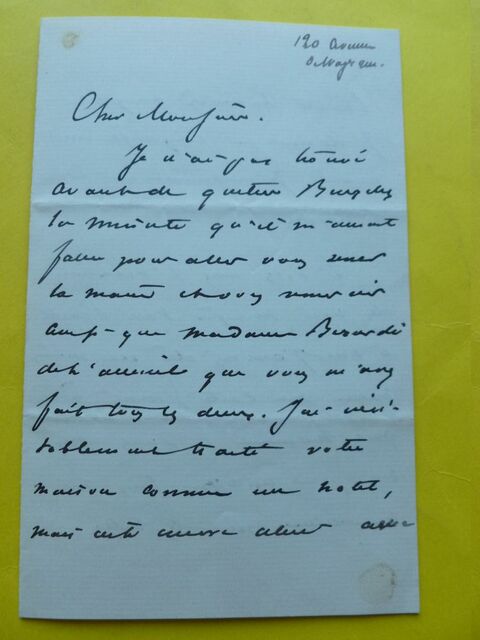 120 Avenue
de Wagram.
Cher Monsieur.
Je n'ai pas trouvé
avant de quitter Bruxelles
la minute qu'il m'aurait
fallu pour aller vous serrer
la main et vous remercier
ainsi que madame Bérardi
de l'accueil que vous m'avez
fait tous les deux. J'ai véri-
tablement traité votre
maison comme un hotel,
mais cette avec